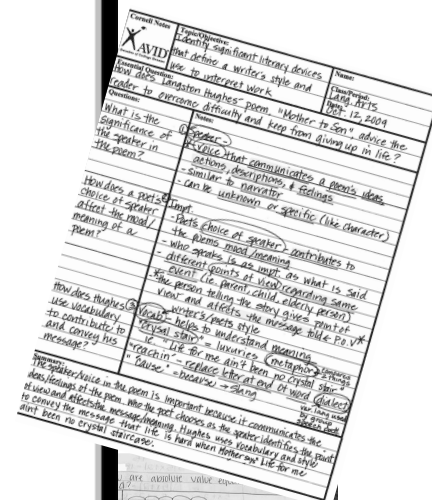 Cornell Notes
AVID
Topic/Objective:
Identify significant literary devices
that define a writer's style and
use to interpret work
Name:
Class/Period:
Lang. Arts
Oct. 12, 2009
Essential Question:
How does Langston Hughes' poem, "Mother to Son", advise the
reader to overcome difficulty and keep from giving up in life?
Questions:
Notes:
What is the
significance of
the speaker in
the poem?
How does a poet's
choice of speaker
affect the mood/
meaning of a
poem?
How does Hughes
use vocabulary
to contribute to
and convey his
message?
① Speaker -
* voice that communicates a poem's ideas,
actions, descriptions, & feelings
- similar to narrator
- can be unknown or specific (like character)
② Impt.
- Poet's choice of speaker contributes to
the poems mood/meaning
- who speaks is as impt. as what is said
- different points of view regarding same
event (ie. parent, child, elderly person)
* the person telling the story gives point of
view and affects the message told * P.O.V *
③ Vocab - writer's/poet's style
- helps to understand meaning
"crystal stair" = luxuries (metaphor) → compares 2 things
ie "Life for me ain't been no crystal stair"
"reachin'" - replace letter at end of word (dialect)
"'cause" = because → slang
var. lang used
by group
speech patt.
Summary:
The speaker/voice in the poem is important because it communicates the
ideas/feelings of the poem. Who the poet chooses as the speaker identifies the point
of view and affects the message/meaning. Hughes uses vocabulary and style
to convey the message that life is hard when Mother says "Life for me
aint been no crystal staircase.
are absolute value equ